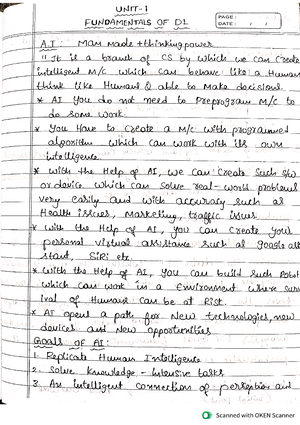 UNIT-1
FUNDAMENTALS OF DL
PAGE :
DATE : / /
A.I : Man Made + thinking power
"It is a branch of CS by which we can Create
intelligent M/C which can behave like a Human
think like Humans & able to Make decisions.
* AI You do not need to Preprogram M/C to
do some work.
* You Have to Create a M/C with programmed
algorithm which can work with its own
intelligence.
* With the Help of AI, we can Create such S/w
or device which can solve real-world problems
very easily and with accuracy such as
Health issues, Marketing, traffic issues
* With the Help of AI, you can Create your
personal virtual assistance such as google assi
stant, Siri etc.
* With the Help of AI, You can build such Robot
which can work in a Environment where surv
ival of Humans can be at Risk.
* AI opens a path for New technologies, new
devices and New opportunities
Goals of AI:
1. Replicate Human Intelligence
2. Solve Knowledge-Intensive tasks
3. An intelligent connection of perception and
Scanned with OKEN Scanner